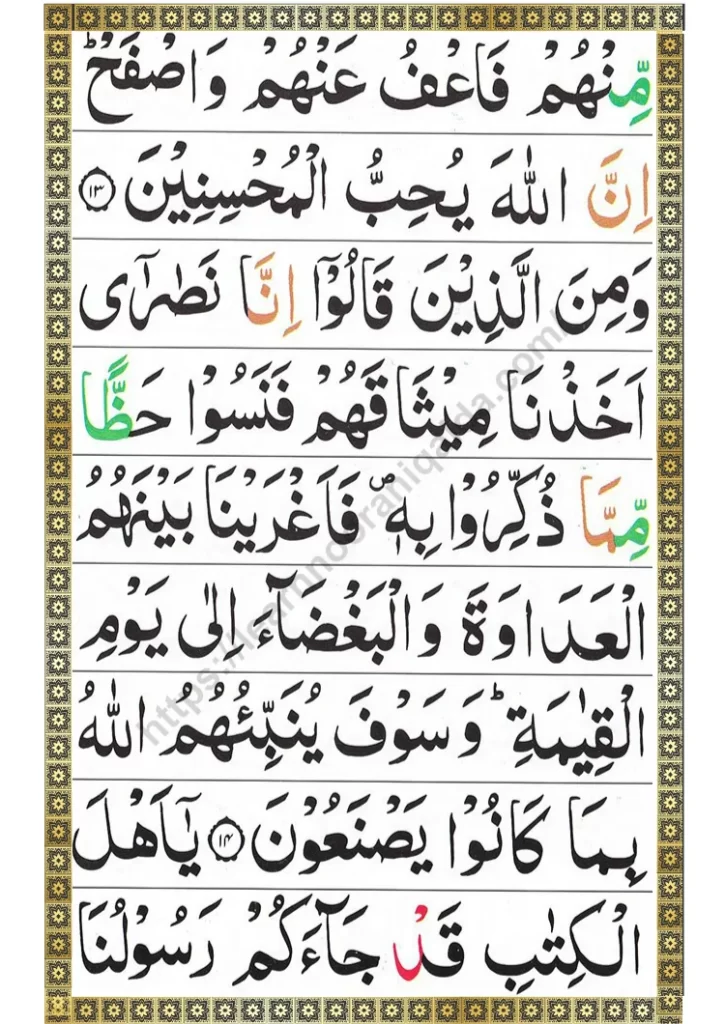 مِّنْهُمْ فَاعْفُ عَنْهُمْ وَاصْفَحْ ؕ
اِنَّ اللّٰهَ يُحِبُّ الْمُحْسِنِيْنَ ﴿۱۳﴾
وَمِنَ الَّذِيْنَ قَالُوْٓا اِنَّا نَصٰرٰٓى
اَخَذْنَا مِيْثَاقَهُمْ فَنَسُوْا حَظًّا
مِّمَّا ذُكِّرُوْا بِهٖ ۪ فَاَغْرَيْنَا بَيْنَهُمُ
الْعَدَاوَةَ وَالْبَغْضَآءَ اِلٰى يَوْمِ
الْقِيٰمَةِ ؕ وَسَوْفَ يُنَبِّئُهُمُ اللّٰهُ
بِمَا كَانُوْا يَصْنَعُوْنَ ﴿۱۴﴾ يٰٓاَهْلَ
الْكِتٰبِ قَدْ جَآءَكُمْ رَسُوْلُنَا
https://learnnooraniqaida.com/